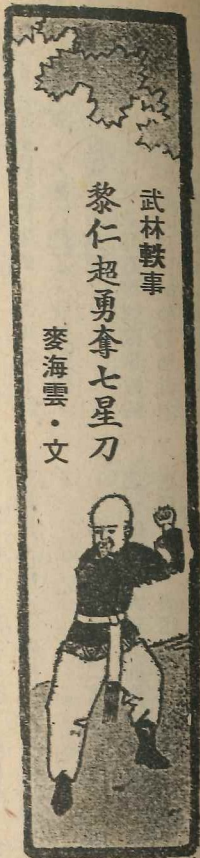 武林軼事
黎仁超勇奪七星刀
麥海雲·文